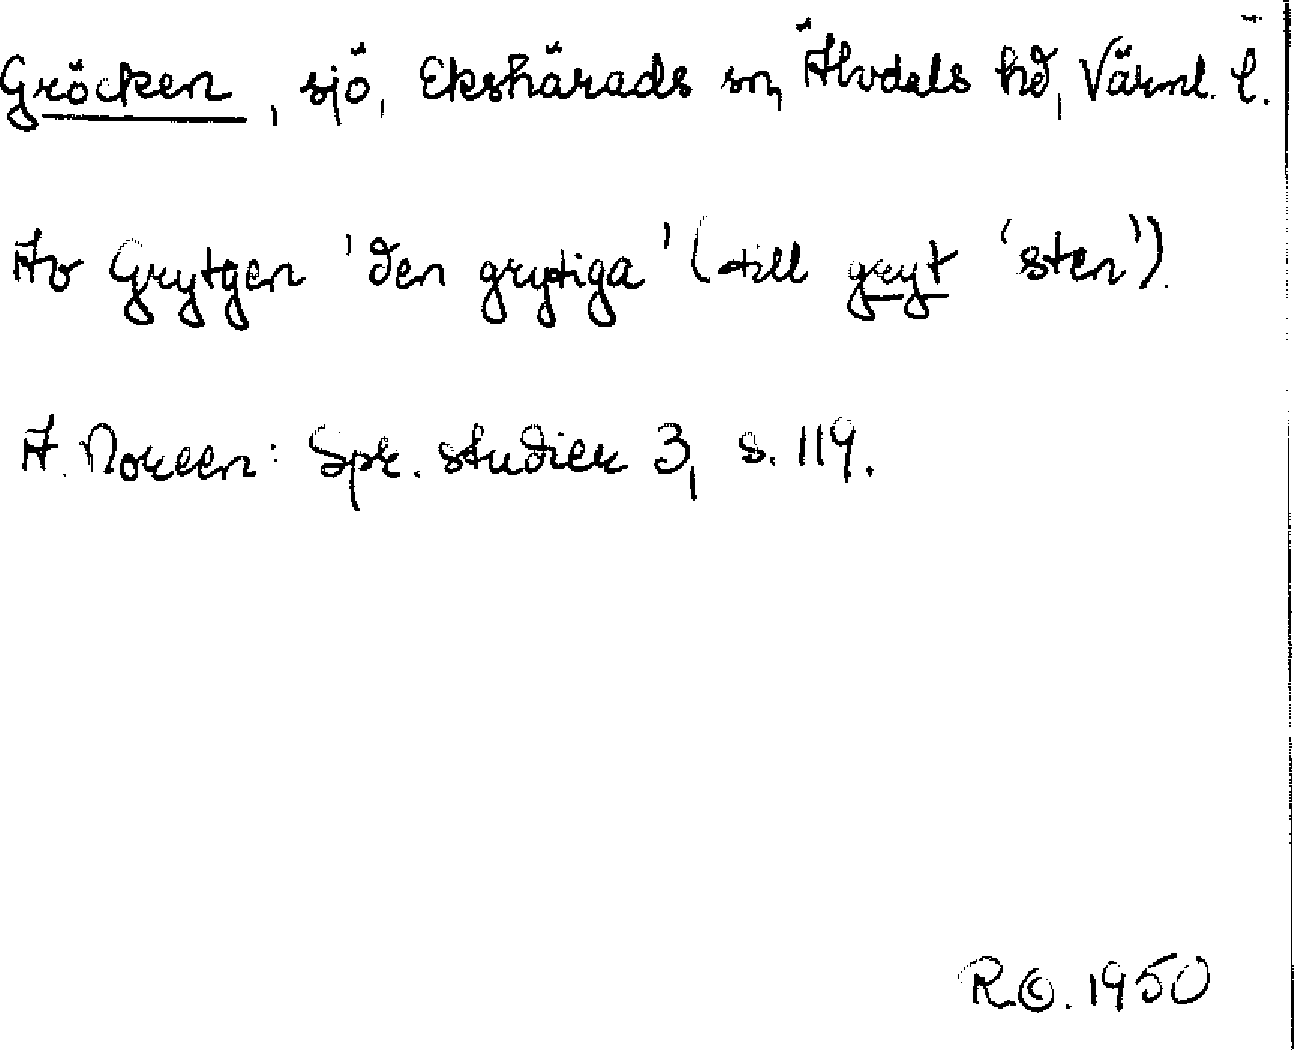 Gröcken, sjö, Ekshärads sn, Älvdals hd, Värml. l.
Av Grytgen 'den grytiga' (till gryt 'sten').
A. Noreen: Spr. studier 3, s. 119.
1950